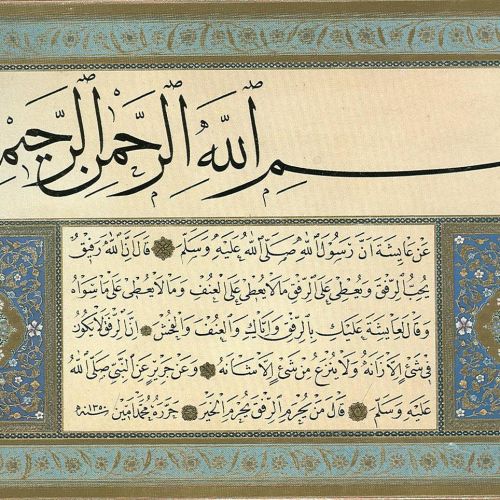 بسم الله الرحمن الرحيم
عن عايشة ان رسول الله صلى الله عليه وسلم قال ان الله رفيق
يحب الرفق ويعطي على الرفق ما لا يعطي على العنف وما لا يعطي على ما سواه
وقال لعايشة عليك بالرفق واياك والعنف والفحش ان الرفق لا يكون
في شئ الا زانه ولا ينزع من شئ الا شانه وعن جرير عن النبي صلى الله
عليه وسلم قال من يحرم الرفق يحرم الخير حرره محمد امين سنه ١٣٥٠